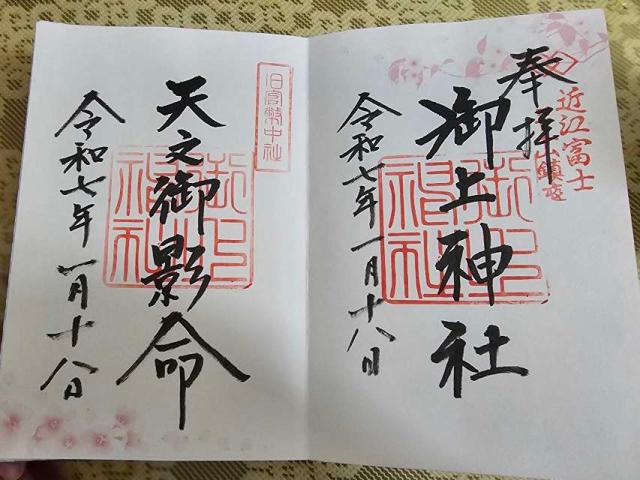 奉拝
近江富士
鎮座
御上神社
御上神社
令和七年一月十八日
旧官幣中社
天之御影命
御上神社
令和七年一月十八日